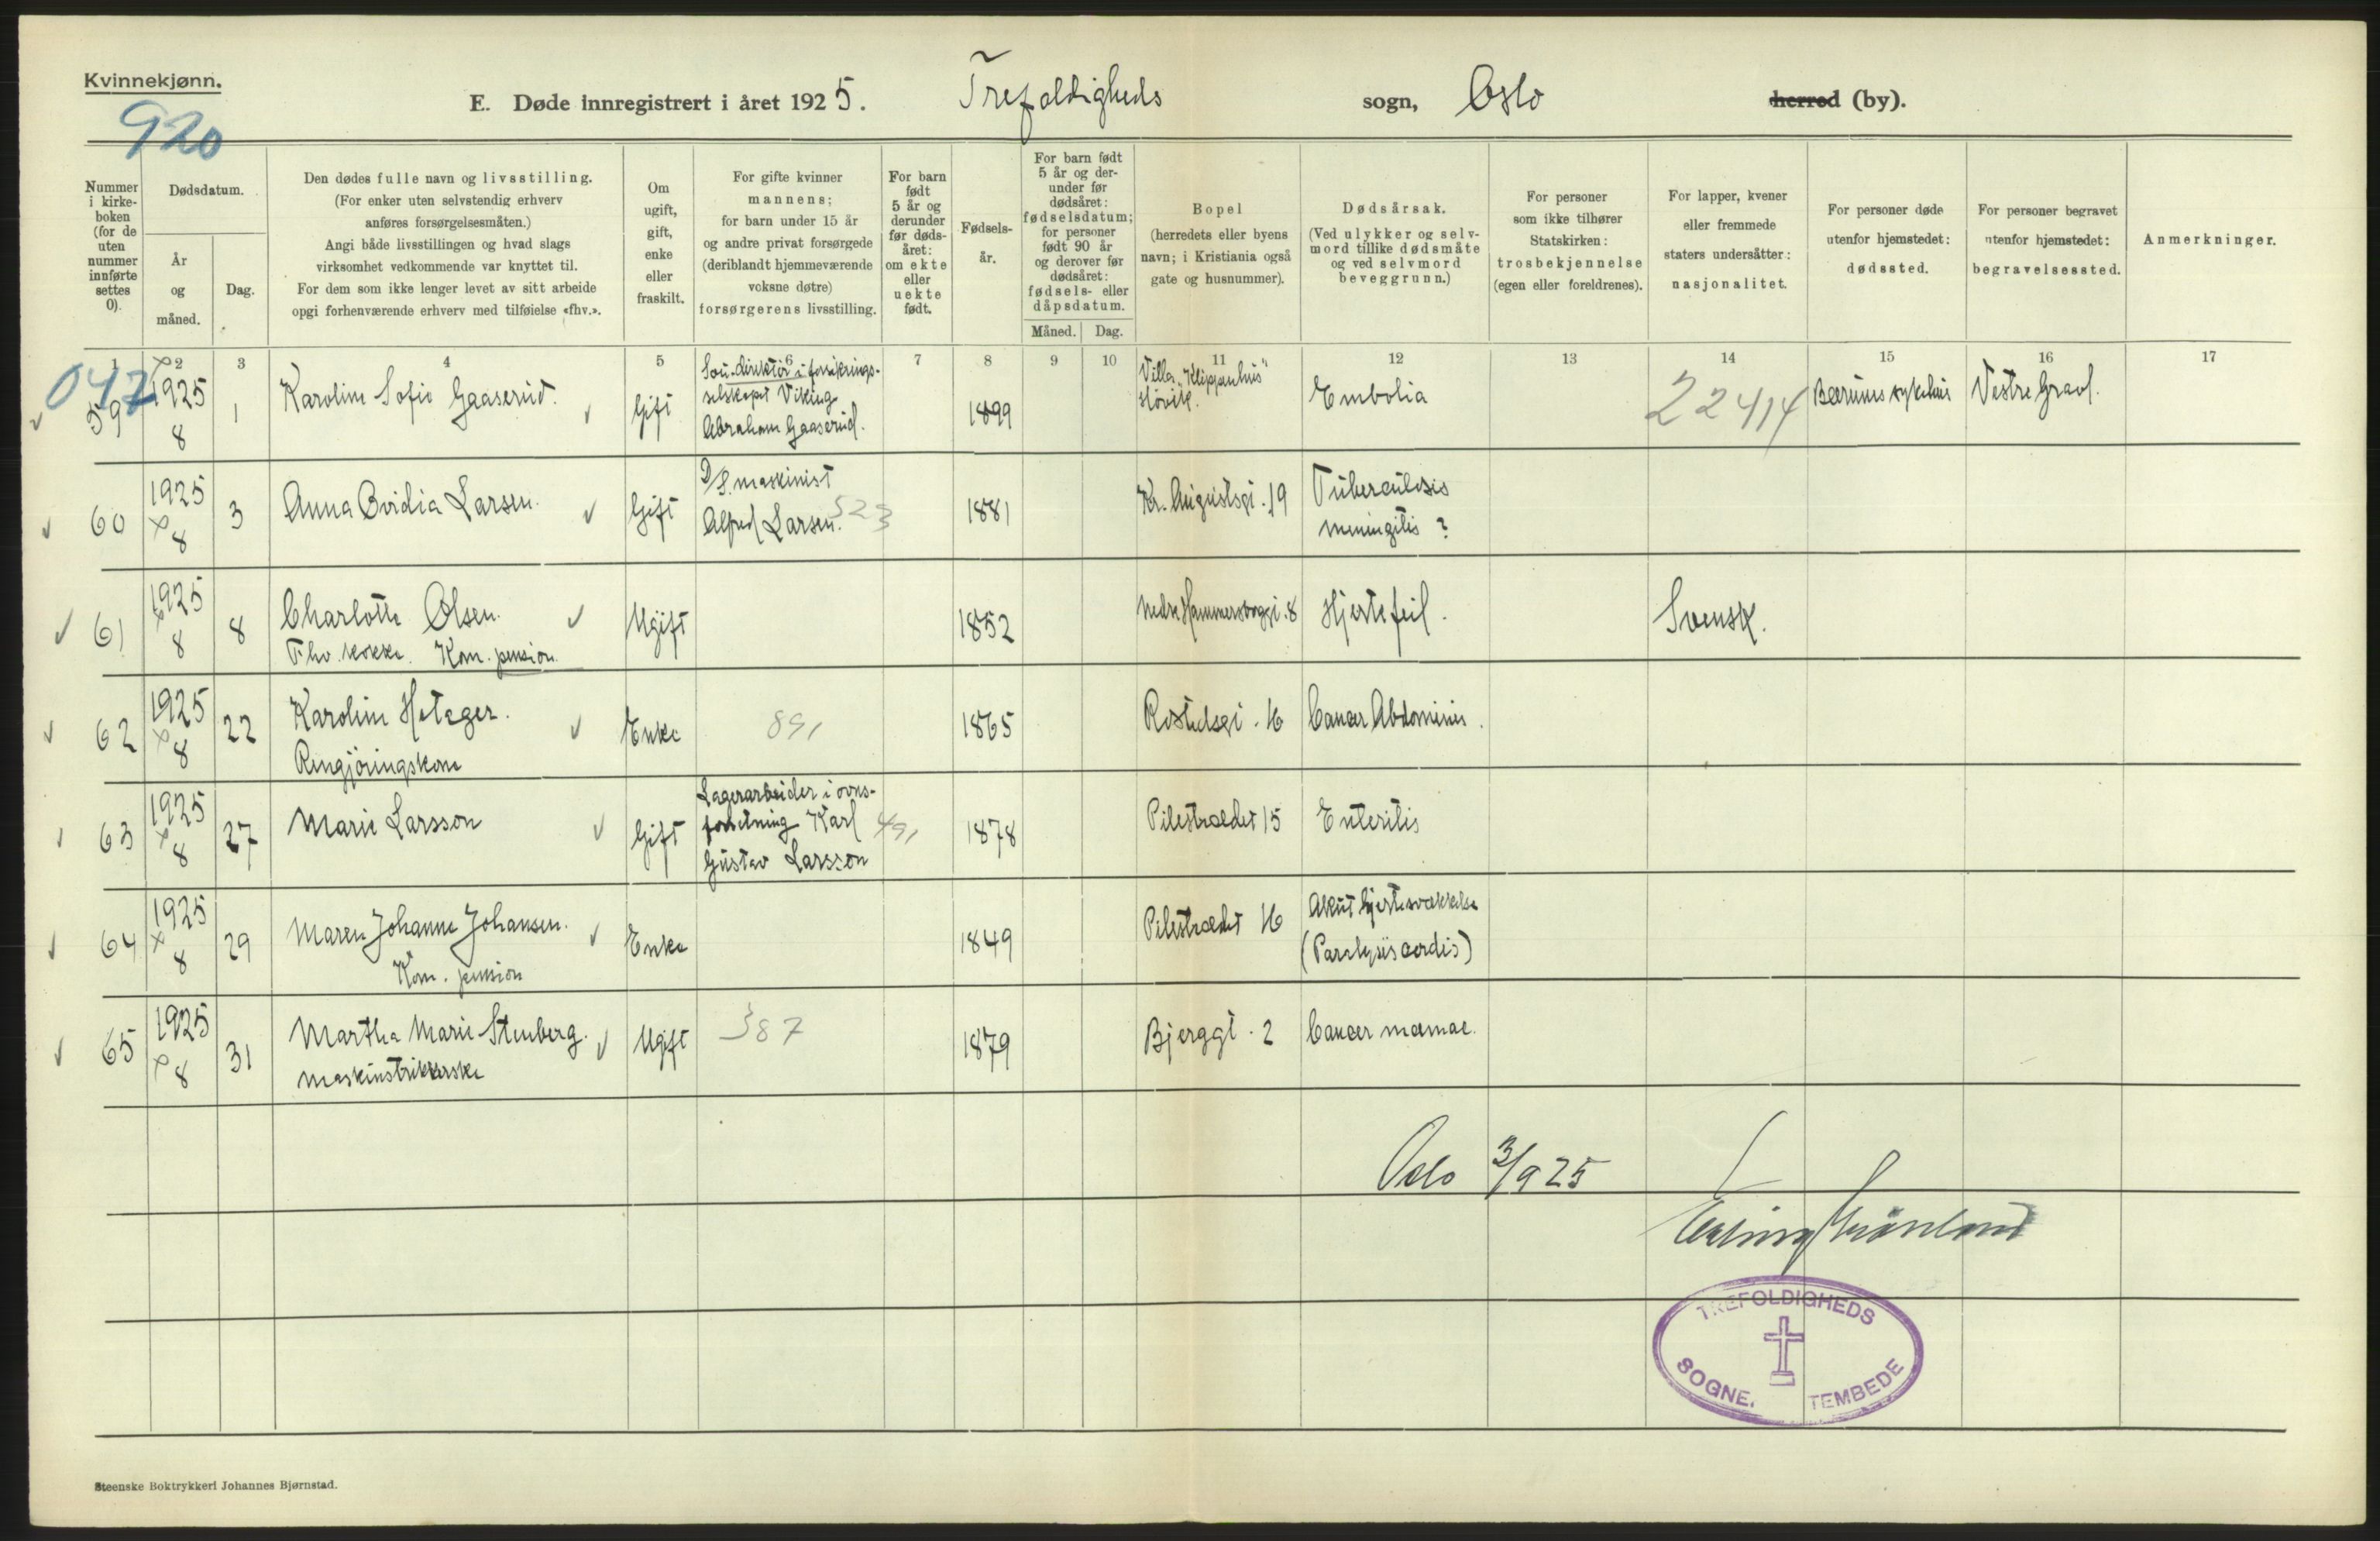 Kvinnekjønn.
920
E. Døde innregistrert i året 1925. Trefoldigheds sogn, Oslo herred (by).
Nummer i kirke-boken (for de uten nummer innførte settes 0).
Dødsdatum.
År og måned.
Dag.
Den dødes fulle navn og livsstilling.
(For enker uten selvstendig erhverv
anføres forsørgelsesmåten.)
Angi både livsstillingen og hvad slags
virksomhet vedkommende var knyttet til.
For dem som ikke lenger levet av sitt arbeide
opgi forhenværende erhverv med tilføielse «fhv.».
Om
ugift,
gift,
enke
eller
fraskilt.
For gifte kvinner
mannens;
for barn under 15 år
og andre privat forsørgede
(deriblandt hjemmeværende
voksne døtre)
forsørgerens livsstilling.
For barn
født
5 år og
derunder
før døds-
året:
om ekte
eller
uekte
født.
Fødsels-
år.
For barn født
5 år og der-
under før
dødsåret:
fødselsdatum;
for personer
født 90 år
og derover før
dødsåret:
fødsels- eller
dåpsdatum.
Måned. Dag.
Bopel
(herredets eller byens
navn; i Kristiania også
gate og husnummer).
Dødsårsak.
(Ved ulykker og selv-
mord tillike dødsmåte
og ved selvmord
beveggrunn.)
For personer
som ikke tilhører
Statskirken:
trosbekjennelse
(egen eller foreldrenes).
For lapper, kvener
eller fremmede
staters undersåtter:
nasjonalitet.
For personer døde
utenfor hjemstedet:
dødssted.
For personer begravet
utenfor hjemstedet:
begravelsessted.
Anmerkninger.
1 2 3 4 5 6 7 8 9 10 11 12 13 14 15 16 17
047
59 1925 8 1 Karoline Sofie Gaaserud. Gift
Sou-direktör i forsikrings-
selskapet Viking
Abraham Gaaserud.
1899
Villa „Klippenhus"
Hövik.
Embolia 22414 Bærums sykehus Vestre Gravl.
60 1925 8 3 Anna Ovidia Larsen. Gift
D/S. maskinist
Alfred Larsen. 523
1881 Kr. Augustsgt. 19
Tuberculosis
meningitis ?
61 1925 8 8 Charlotte Olsen.
Fhv. kokke. Kom. pension.
Ugift 1852 Nedre Hammersborggt. 8 Hjertefeil. Svensk.
62 1925 8 22 Karoline Hotager.
Rengjöringskone
Enke 891 1865 Rostedsgt. 16 Cancer Abdominis.
63 1925 8 27 Marie Larsson Gift
Lagerarbeider i ovns-
forretning Karl
Gustav Larsson
491 1878 Pilestrædet 15 Enteritis
64 1925 8 29 Maren Johanne Johansen.
Kom. pension
Enke 1849 Pilestrædet 16
Akut hjertesvækkelse
(Paralysis cordis)
65 1925 8 31 Martha Marie Stenberg.
Maskinstrikkerske
Ugift 387 1879 Bjerggt. 2 Cancer mamae.
Oslo 3/9 25
Erling Grönland
TREFOLDIGHEDS
SOGNE. TEMBEDE
Steenske Boktrykkeri Johannes Bjørnstad.